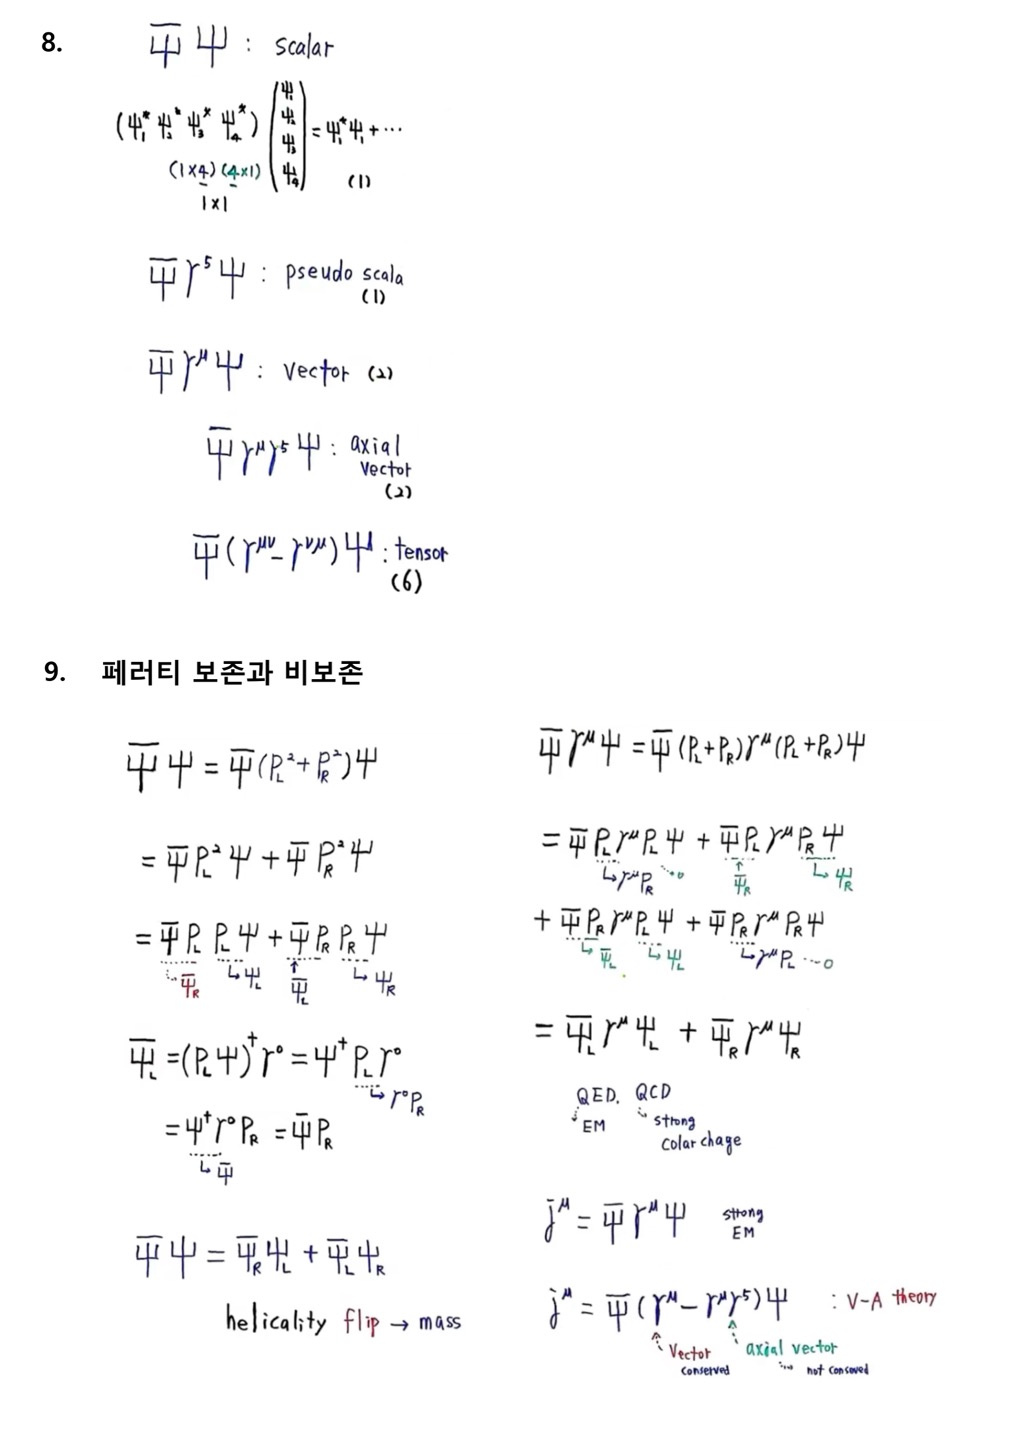 8.
Ψ̄ Ψ : scalar
(Ψ₁* Ψ₂* Ψ₃* Ψ₄*) (Ψ₁ Ψ₂ Ψ₃ Ψ₄) = Ψ₁*Ψ₁ + ⋯
(1×4) (4×1) (1)
1×1
Ψ̄ γ⁵ Ψ : pseudo scala
(1)
Ψ̄ γ^μ Ψ : vector (2)
Ψ̄ γ^μ γ⁵ Ψ : axial
vector
(2)
Ψ̄ (γ^μν - γ^νμ) Ψ : tensor
(6)
9. 페러티 보존과 비보존
Ψ̄ Ψ = Ψ̄ (P_L² + P_R²) Ψ
= Ψ̄ P_L² Ψ + Ψ̄ P_R² Ψ
= Ψ̄ P_L P_L Ψ + Ψ̄ P_R P_R Ψ
↳ Ψ̄_R ↳ Ψ_L ↑ Ψ̄_L ↳ Ψ_R
Ψ̄_L = (P_L Ψ)† γ⁰ = Ψ† P_L γ⁰
↳ γ⁰ P_R
= Ψ† γ⁰ P_R = Ψ̄ P_R
↳ Ψ̄
Ψ̄ Ψ = Ψ̄_R Ψ_L + Ψ̄_L Ψ_R
helicality flip → mass
Ψ̄ γ^μ Ψ = Ψ̄ (P_L + P_R) γ^μ (P_L + P_R) Ψ
= Ψ̄ P_L γ^μ P_L Ψ + Ψ̄ P_L γ^μ P_R Ψ
↳ γ^μ P_R ⋯0 ↑ Ψ̄_R ↳ Ψ_R
+ Ψ̄ P_R γ^μ P_L Ψ + Ψ̄ P_R γ^μ P_R Ψ
↳ Ψ̄_L ↳ Ψ_L ↳ γ^μ P_L ⋯0
= Ψ̄_L γ^μ Ψ_L + Ψ̄_R γ^μ Ψ_R
QED, QCD
EM strong
Colar chage
j^μ = Ψ̄ γ^μ Ψ strong
EM
j^μ = Ψ̄ (γ^μ - γ^μ γ⁵) Ψ : V-A theory
Vector axial vector
conserved not consoved